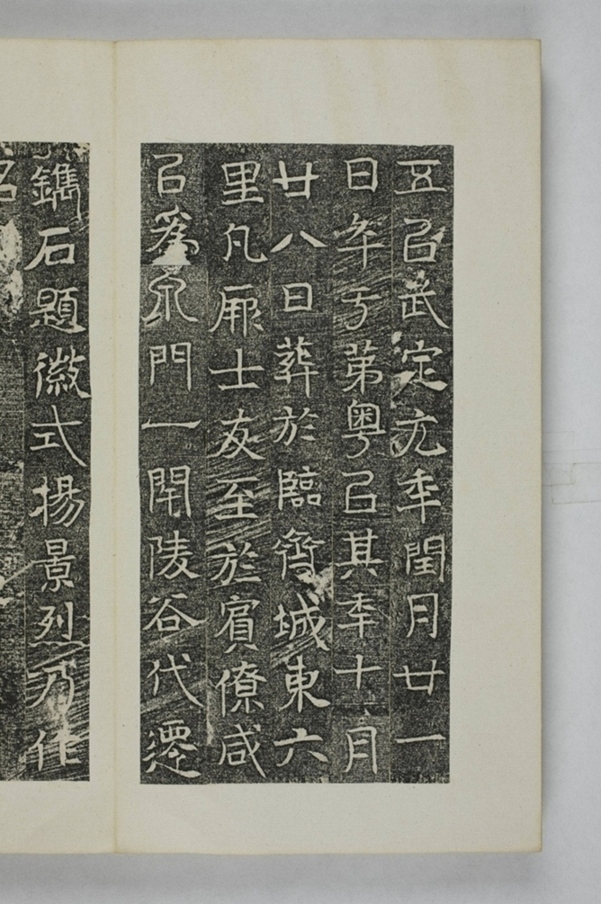 五㠯武定元秊閏月廿一
日卒于苐粤㠯其秊十月
廿八日葬於臨齊城東六
里凡厥士友至於賓僚咸
㠯為泉門一閇陵谷代遷
鐫石題徽式揚景烈乃作